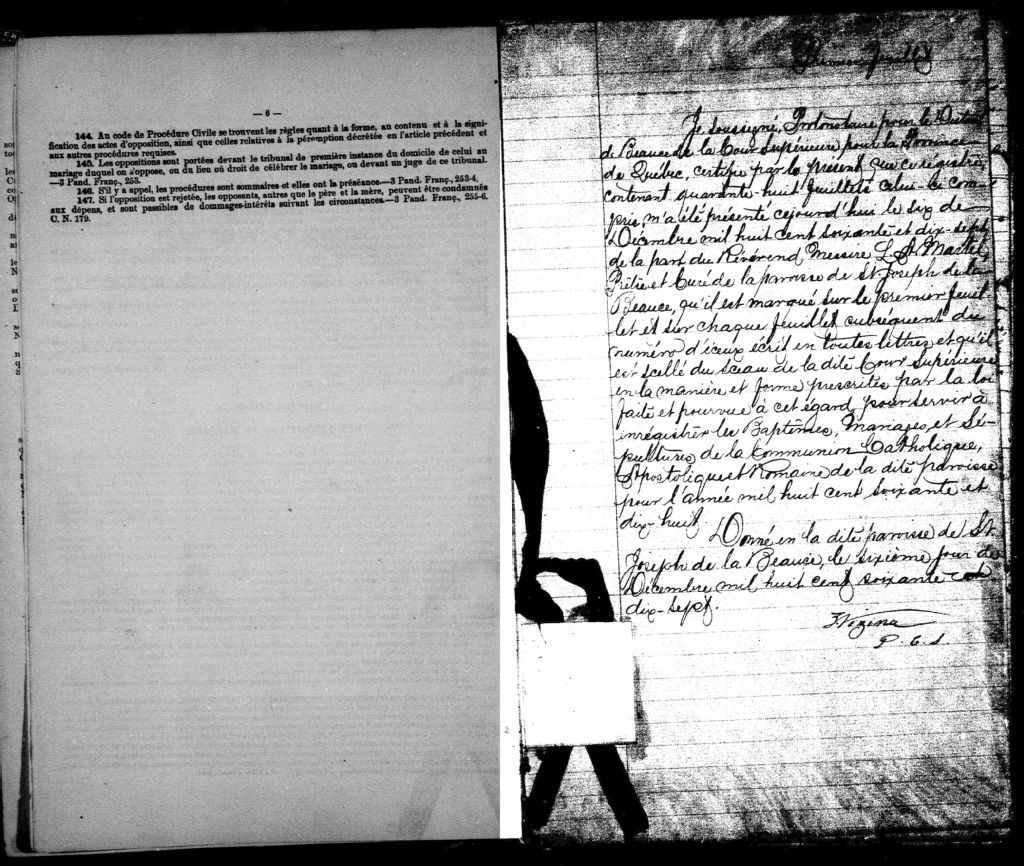 — 6 —
144. Au code de Procédure Civile se trouvent les règles quant à la forme, au contenu et à la signi-
fication des actes d'opposition, ainsi que celles relatives à la péremption décrétée en l'article précédent et
aux autres procédures requises.
145. Les oppositions sont portées devant le tribunal de première instance du domicile de celui au
mariage duquel on s'oppose, ou du lieu où droit de célébrer le mariage, ou devant un juge de ce tribunal.
—3 Pand. Franç., 253.
146. S'il y a appel, les procédures sont sommaires et elles ont la préséance.—3 Pand. Franç., 253-4.
147. Si l'opposition est rejetée, les opposants, autres que le père et la mère, peuvent être condamnés
aux dépens, et sont passibles de dommages-intérêts suivant les circonstances.—3 Pand. Franç., 255-6.
C. N. 179.
Premier feuillet
Je soussigné, Protonotaire pour le District
de Beauce de la Cour Supérieure pour la Province
de Québec, certifie par le présent que ce registre
contenant quarante-huit feuillets celui-ci com-
pris, m'a été présenté cejourd'hui le six de
Décembre mil huit cent soixante et dix-sept
de la part du Révérend Messire L. A. Martel,
Prêtre et Curé de la paroisse de St Joseph de la
Beauce, qu'il est marqué sur le premier feuil
let et sur chaque feuillet subséquent du
numéro d'iceux écrit en toutes lettres et qu'il
est scellé du sceau de la dite Cour Supérieure
en la manière et forme prescrites par la loi
faite et pourvue à cet égard, pour servir à
enrégistrer les Baptêmes, Mariages, et Sé-
pultures de la Communion Catholique,
Apostolique et Romaine de la dite paroisse
pour l'année mil huit cent soixante et
dix-huit.
Donné en la dite paroisse de St
Joseph de la Beauce, le sixième jour de
Décembre mil huit cent soixante et
dix-sept.
Vézina
P. C. S.